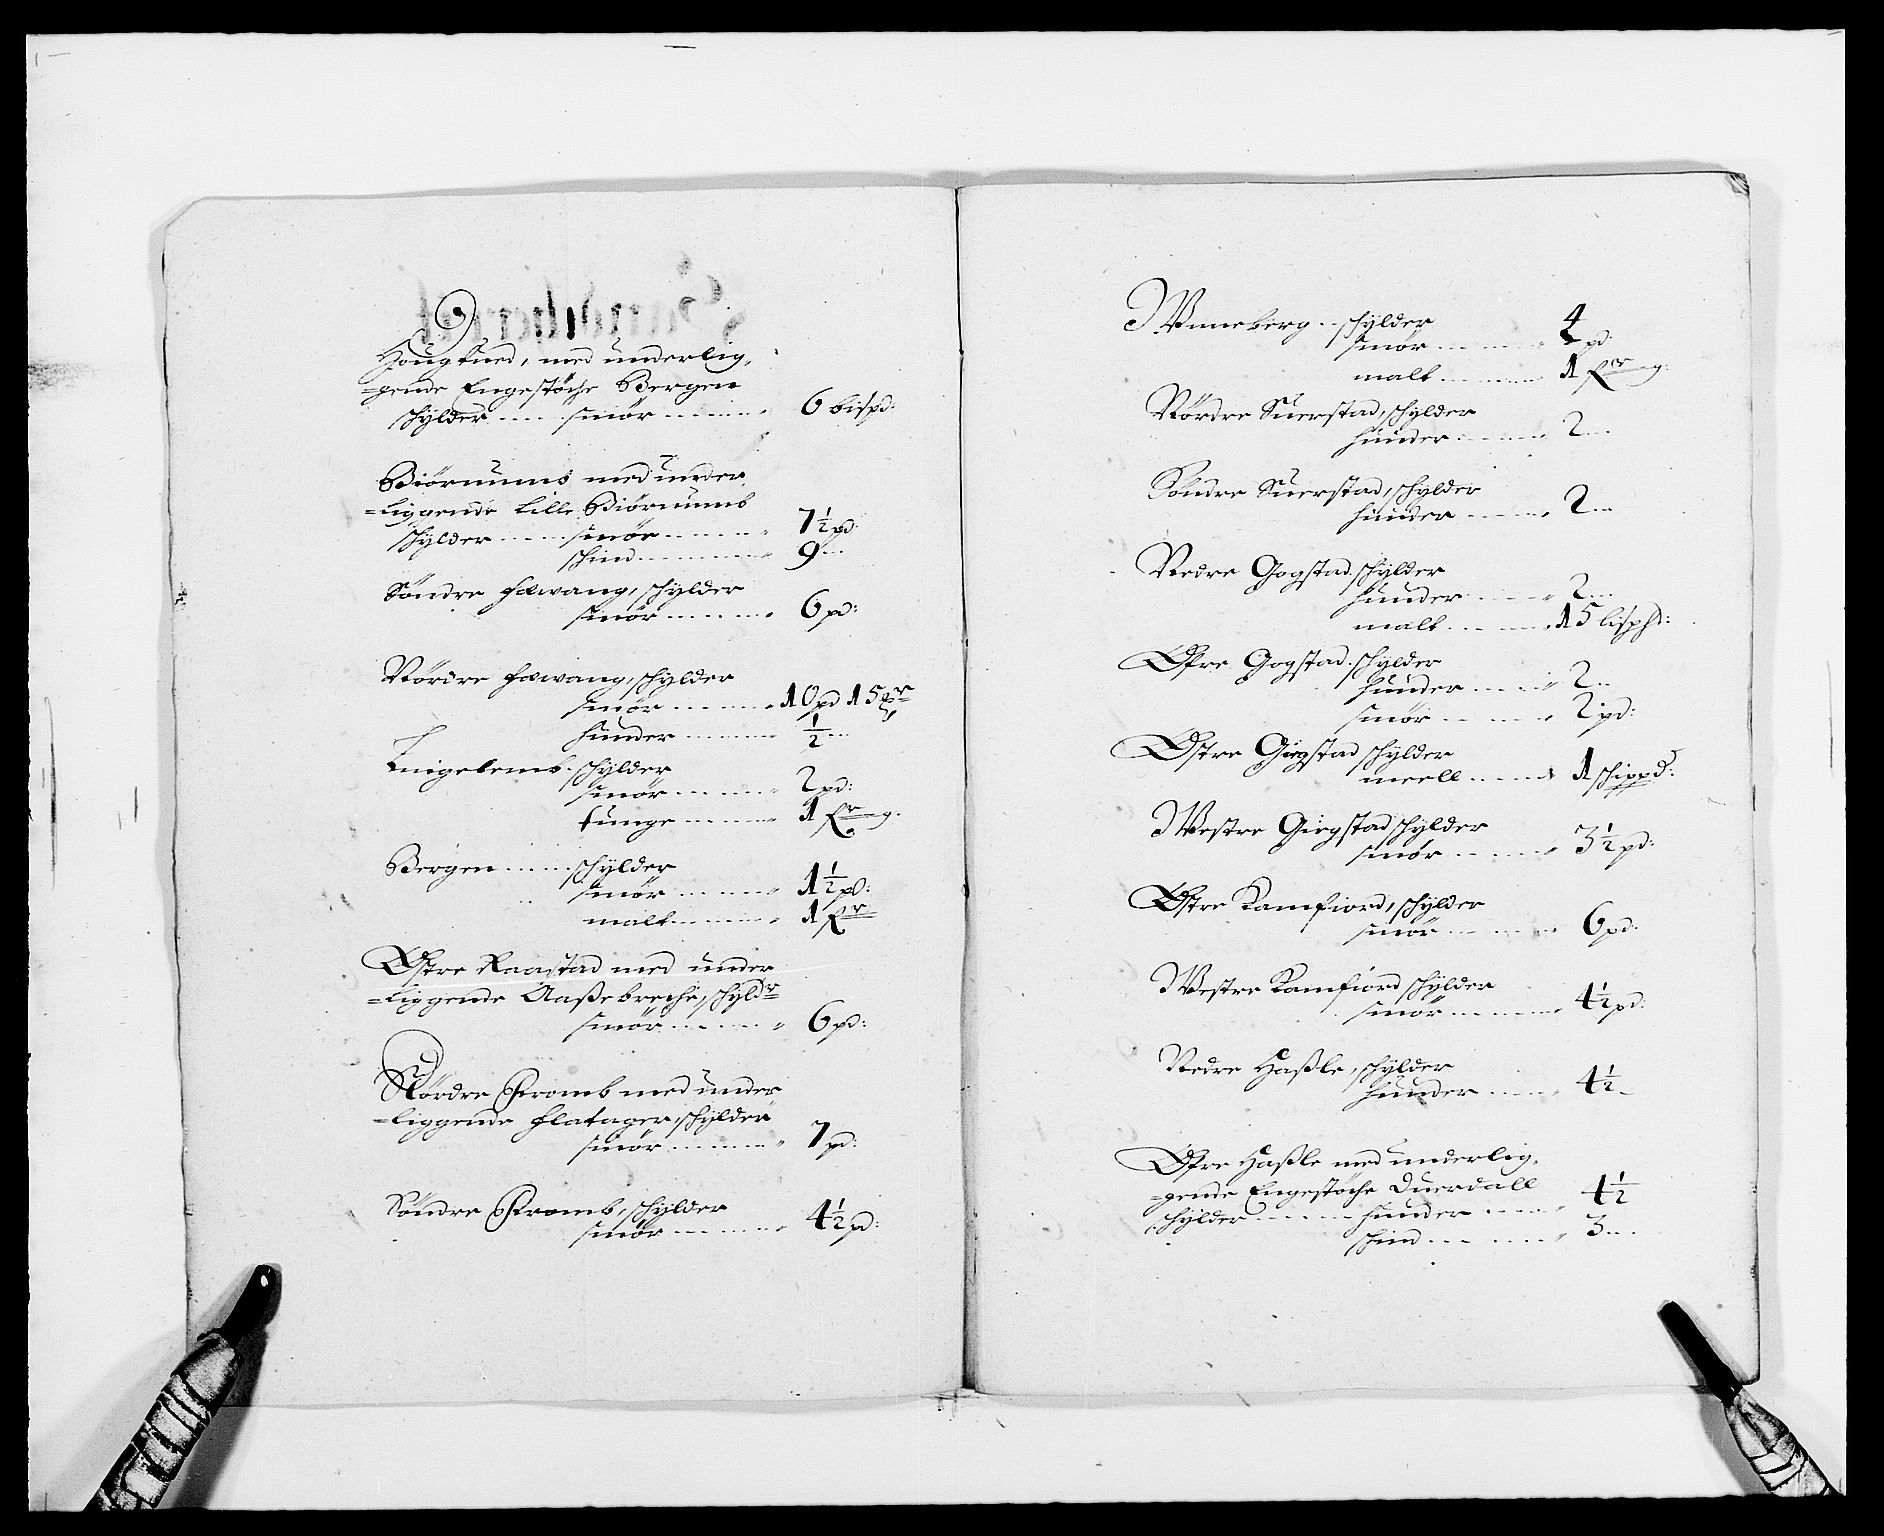 Hougtued, med underlig,
=gende Engestöche Bergen
schylder smör 6 bispd:
Biörnums med under
=liggende lille Biörnumb
schylder smör 7½ pd:
schind 9
Söndre fæwang, schylder
smör 6 pd:
Nördre fæwang, schylder
smör 10 pd 15
hunder ½
schylder
smör 2 pd:
tunge 1
Bergen schylder
smör 1½ pd:
malt 1
Østre Raastad med under
=liggende Aaßebreche, schyldr
smör 6 pd:
Nördre Fromb med under
=liggende flatager schylder
smör 7 pd:
Söndre Fromb, schylder
smör 4½ pd:
Winneberg schylder 4
smör 2 pd:
malt 1
Nördre Suerstad, schylder
hunder 2
Söndre Suerstad, schylder
hunder 2
Nedre Gogstad schylder
hunder 2
malt 15 lisphd:
Øfre Gogstad schylder
hunder 2
smör 2 pd:
Østre Giegstad schylder
meell 1 schippd:
Westre Giegstad schylder
smør 3½ pd:
Østre Kamfiord, schylder
smør 6 pd:
Westre Kamfiord schylder
smör 4½ pd:
Nedre Haßle, schylder
hunder 4½
Øfre Haßle med underlig,
=gende Engestöche Duerdall
schylder hunder 4½
schind 3